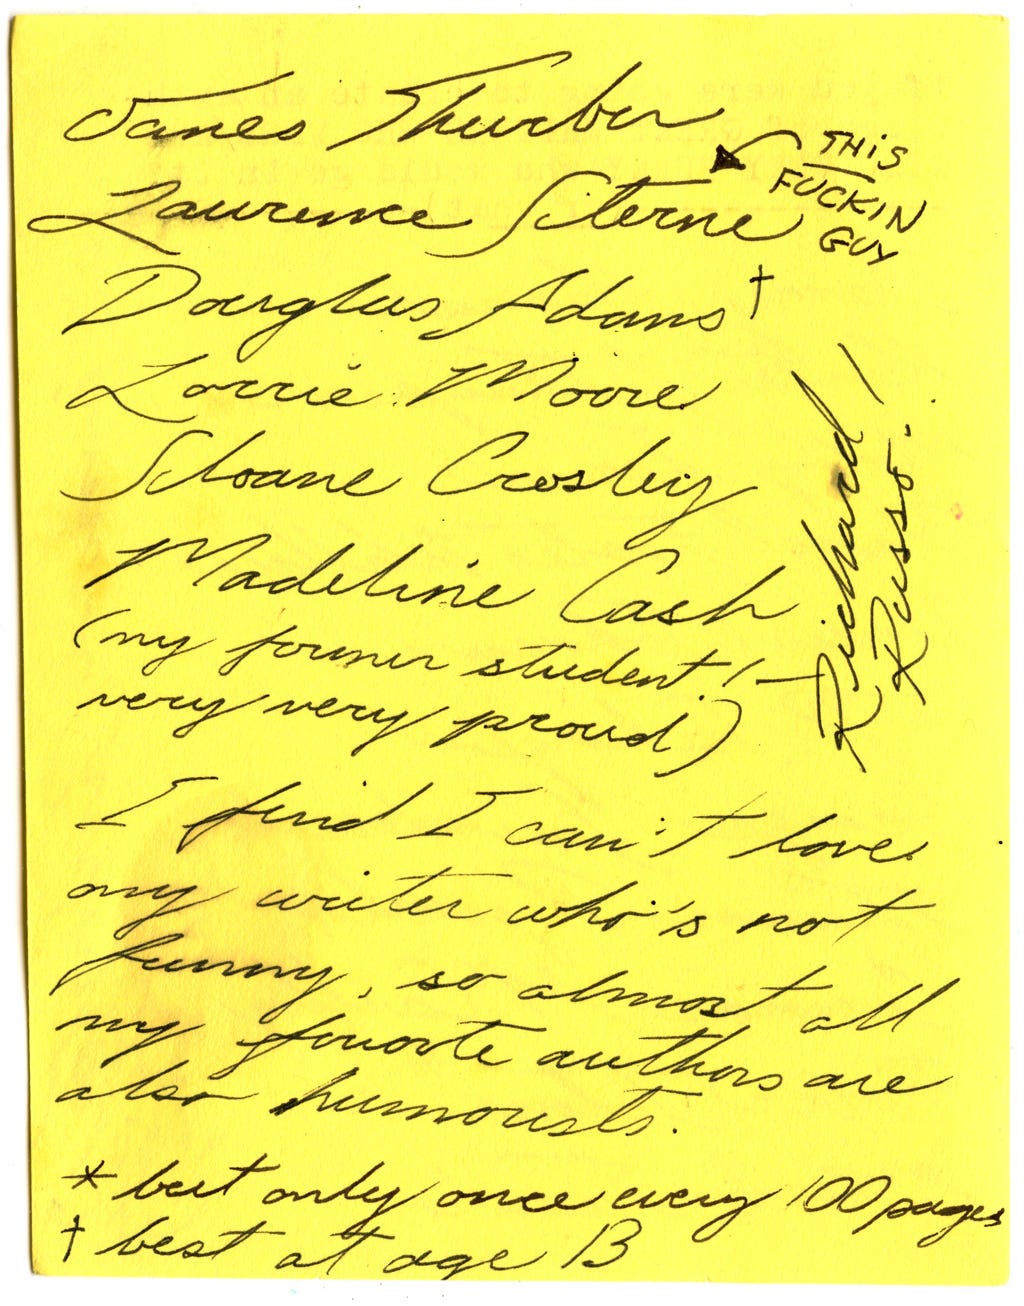 James Thurber
THIS
FUCKIN
GUY
Laurence Sterne
Douglas Adams†
Lorrie Moore
Sloane Crosley
Madeline Cash
(my former student!
very very proud)
Richard
Russo!
I find I can't love
any writer who's not
funny, so almost all
my favorite authors are
also humorists.
* but only once every 100 pages
† best at age 13